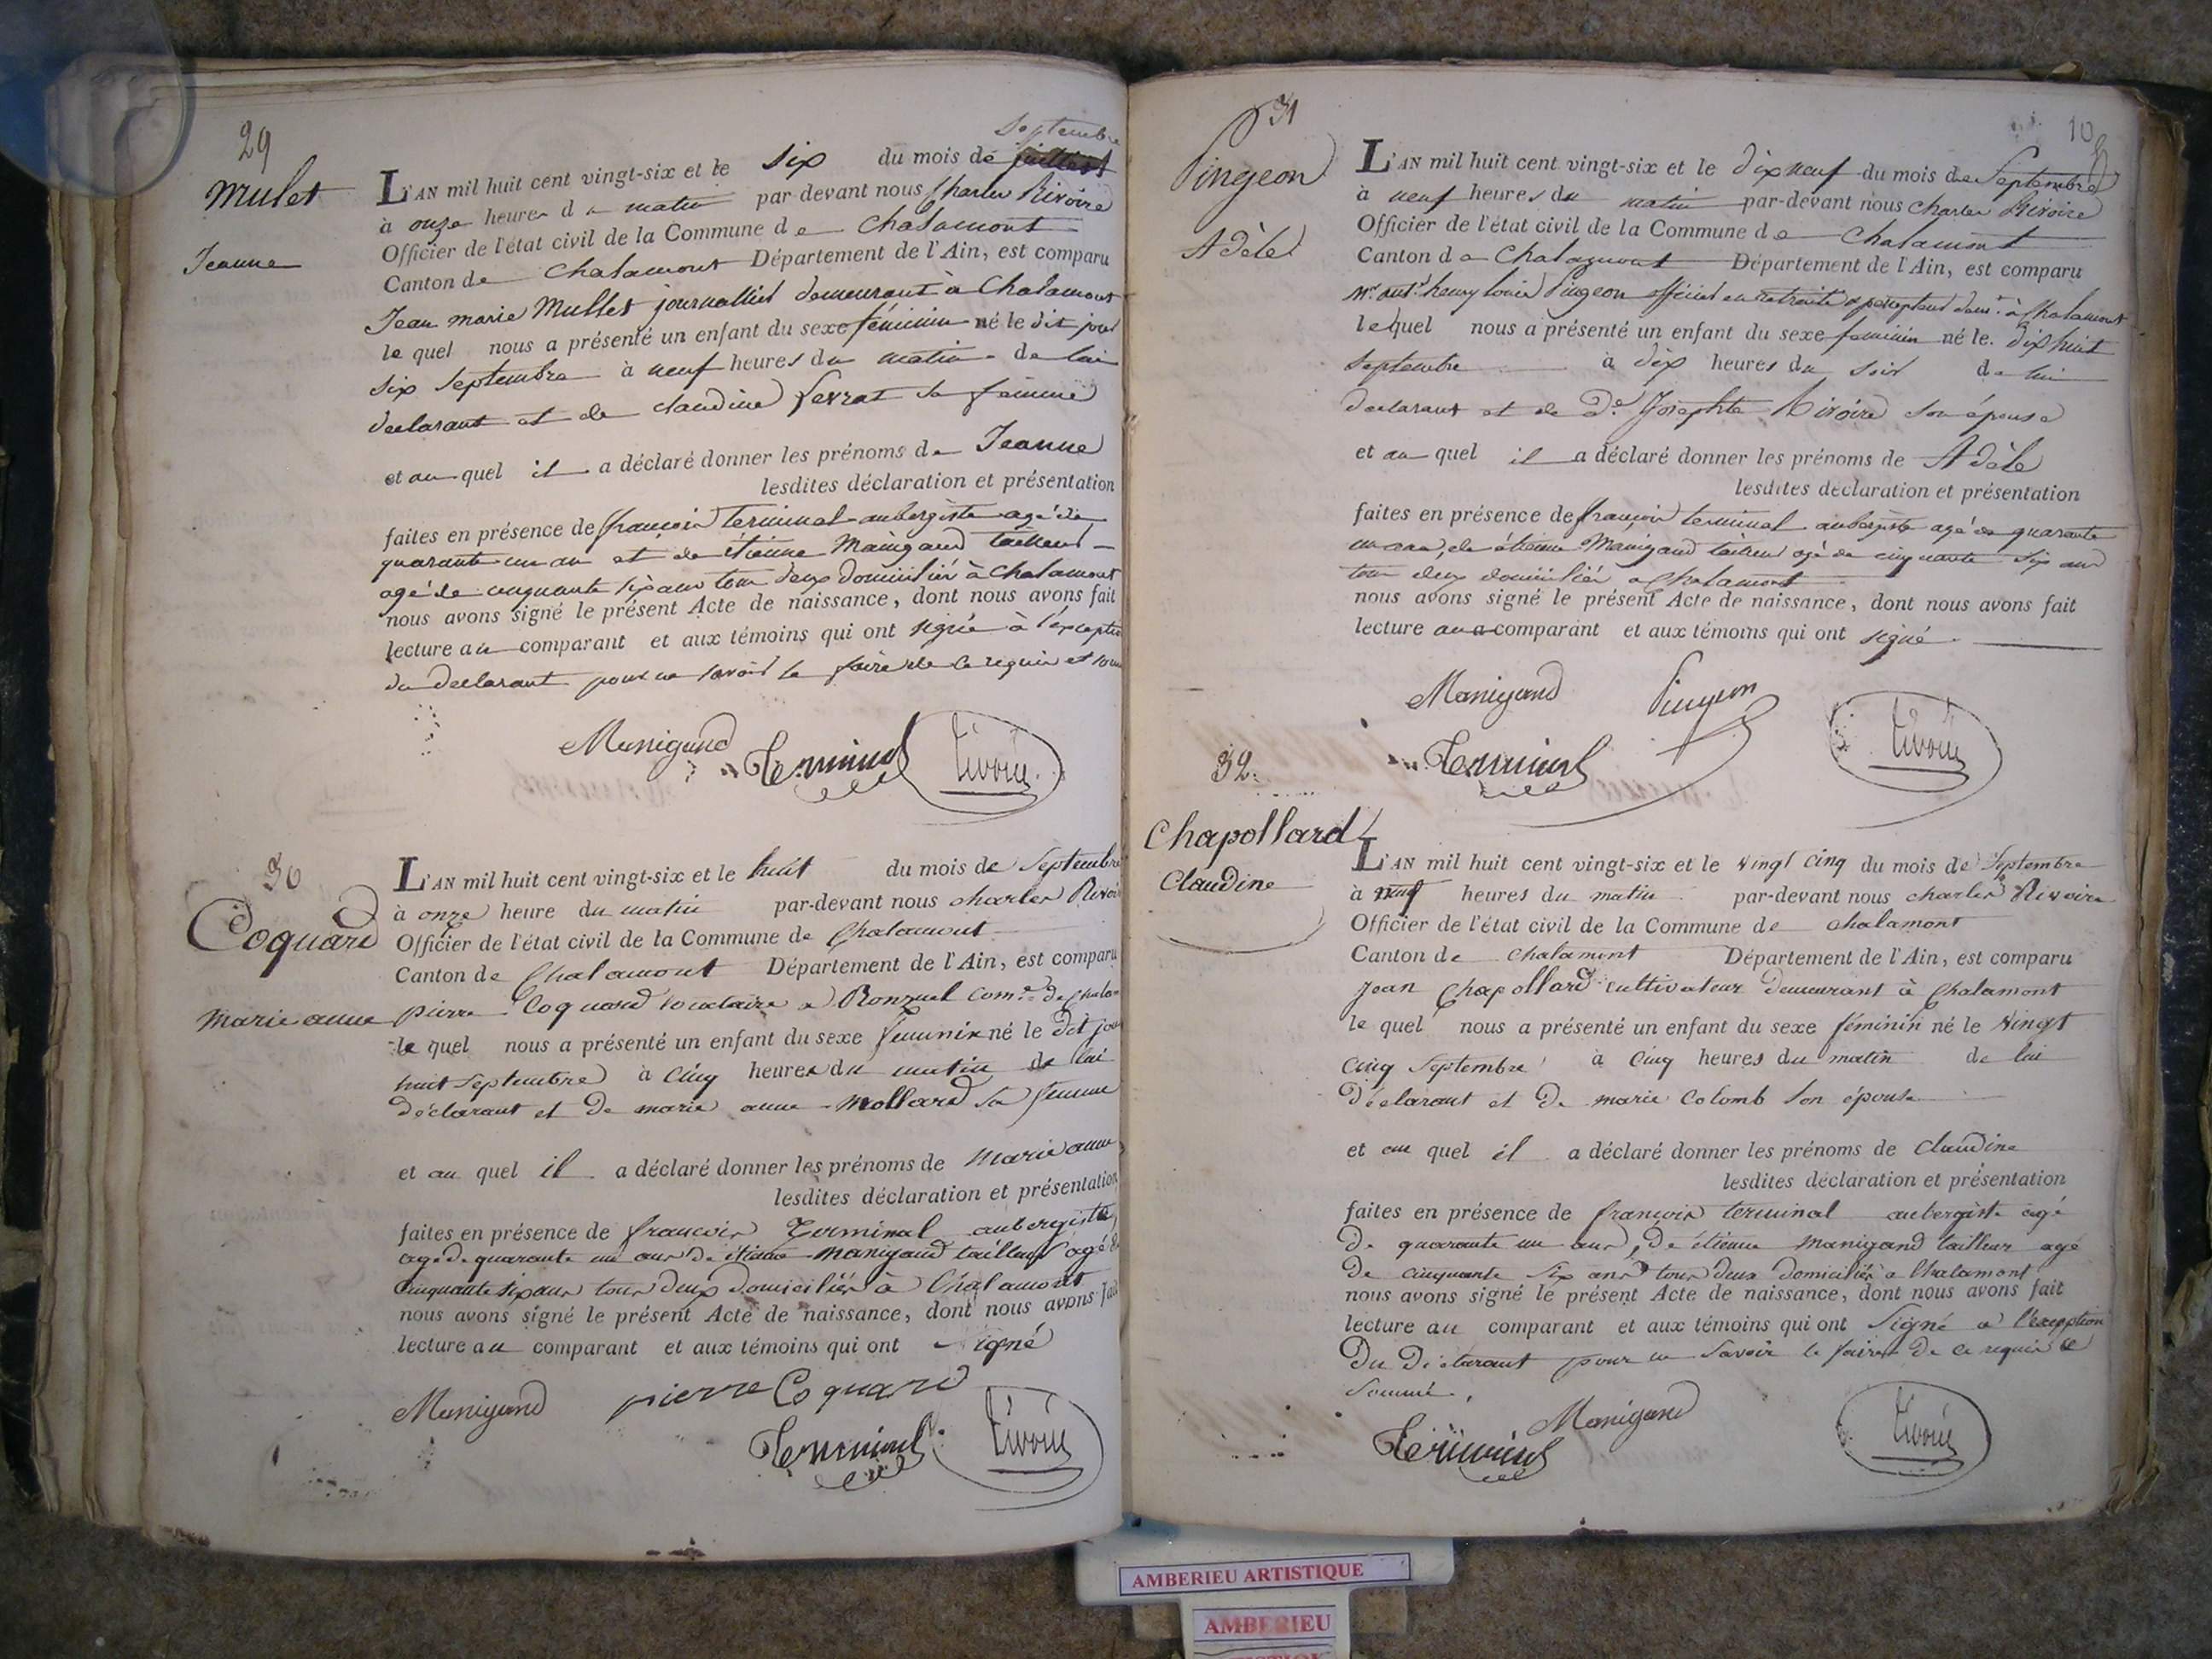 29
Mulet
Jeanne
septembre
L'AN mil huit cent vingt-six et le six du mois de juillet
à onze heures du matin par-devant nous Charles Rivoire
Officier de l'état civil de la Commune de Chalamont
Canton de Chalamont Département de l'Ain, est comparu
Jean marie Mullet journallier demeurant à Chalamont
le quel nous a présenté un enfant du sexe féminin né le dit jour
six septembre à neuf heures du matin de lui
declarant et de claudine ferrat sa femme
et au quel il a déclaré donner les prénoms de Jeanne
lesdites déclaration et présentation
faites en présence de françois Terminal aubergiste agé de
quarante un an et de étienne Manigand tailleur
agé de cinquante six ans tous deux domiciliés à Chalamont
nous avons signé le présent Acte de naissance, dont nous avons fait
lecture au comparant et aux témoins qui ont signé à l'exception
du declarant pour ne savoir le faire de ce requis et
Manigand Terminal Rivoire
30
Coquard
Marie anne
L'AN mil huit cent vingt-six et le huit du mois de Septembre
à onze heure du matin par-devant nous charles Rivoire
Officier de l'état civil de la Commune de Chalamont
Canton de Chalamont Département de l'Ain, est comparu
pierre Coquard a Ronzuel Com.e de
le quel nous a présenté un enfant du sexe féminin né le dit jour
huit Septembre à cinq heures du matin de lui
déclarant et de marie anne Mollard sa femme
et au quel il a déclaré donner les prénoms de Marie anne
lesdites déclaration et présentation
faites en présence de francois Terminal aubergiste,
agé de quarante un ans de étienne Manigand tailleur agé de
cinquante six ans tous deux domiciliés à Chalamont
nous avons signé le présent Acte de naissance, dont nous avons fait
lecture au comparant et aux témoins qui ont signé
Manigand pierre Coquard
Terminal Rivoire
31
Pingeon
Adèle
10
L'AN mil huit cent vingt-six et le dix neuf du mois de Septembre
à neuf heures du matin par-devant nous charles Rivoire
Officier de l'état civil de la Commune de Chalamont
Canton de Chalamont Département de l'Ain, est comparu
Mr. ant.e henry louis Pingeon officier en retraite & percepteur dem.t à Chalamont
lequel nous a présenté un enfant du sexe feminin né le dix huit
septembre à dix heures du soir de lui
declarant et de D.e Josephte Rivoire son épouse
et au quel il a déclaré donner les prénoms de Adèle
lesdites déclaration et présentation
faites en présence de françois terminal aubergiste agé de quarante
un ans, de étienne Manigand tailleur agé de cinquante six ans
tous deux domiciliés a Chalamont
nous avons signé le présent Acte de naissance, dont nous avons fait
lecture au comparant et aux témoins qui ont signé
Manigand Pingeon
Terminal Rivoire
32
Chapollard
Claudine
L'AN mil huit cent vingt-six et le vingt cinq du mois de Septembre
à neuf heures du matin par-devant nous charles Rivoire
Officier de l'état civil de la Commune de chalamont
Canton de chalamont Département de l'Ain, est comparu
Jean Chapollard cultivateur demeurant à Chalamont
le quel nous a présenté un enfant du sexe féminin né le vingt
cinq Septembre à cinq heures du matin de lui
déclarant et de marie Colomb son épouse
et au quel il a déclaré donner les prénoms de Claudine
lesdites déclaration et présentation
faites en présence de françois terminal aubergiste agé
de quarante un ans, de étienne Manigand tailleur agé
de cinquante six ans tous deux domiciliés a Chalamont
nous avons signé le présent Acte de naissance, dont nous avons fait
lecture au comparant et aux témoins qui ont Signé a l'exception
du Déclarant pour ne savoir le faire de ce requis &
sommé.
Terminal Manigand Rivoire
AMBERIEU ARTISTIQUE
AMBERIEU